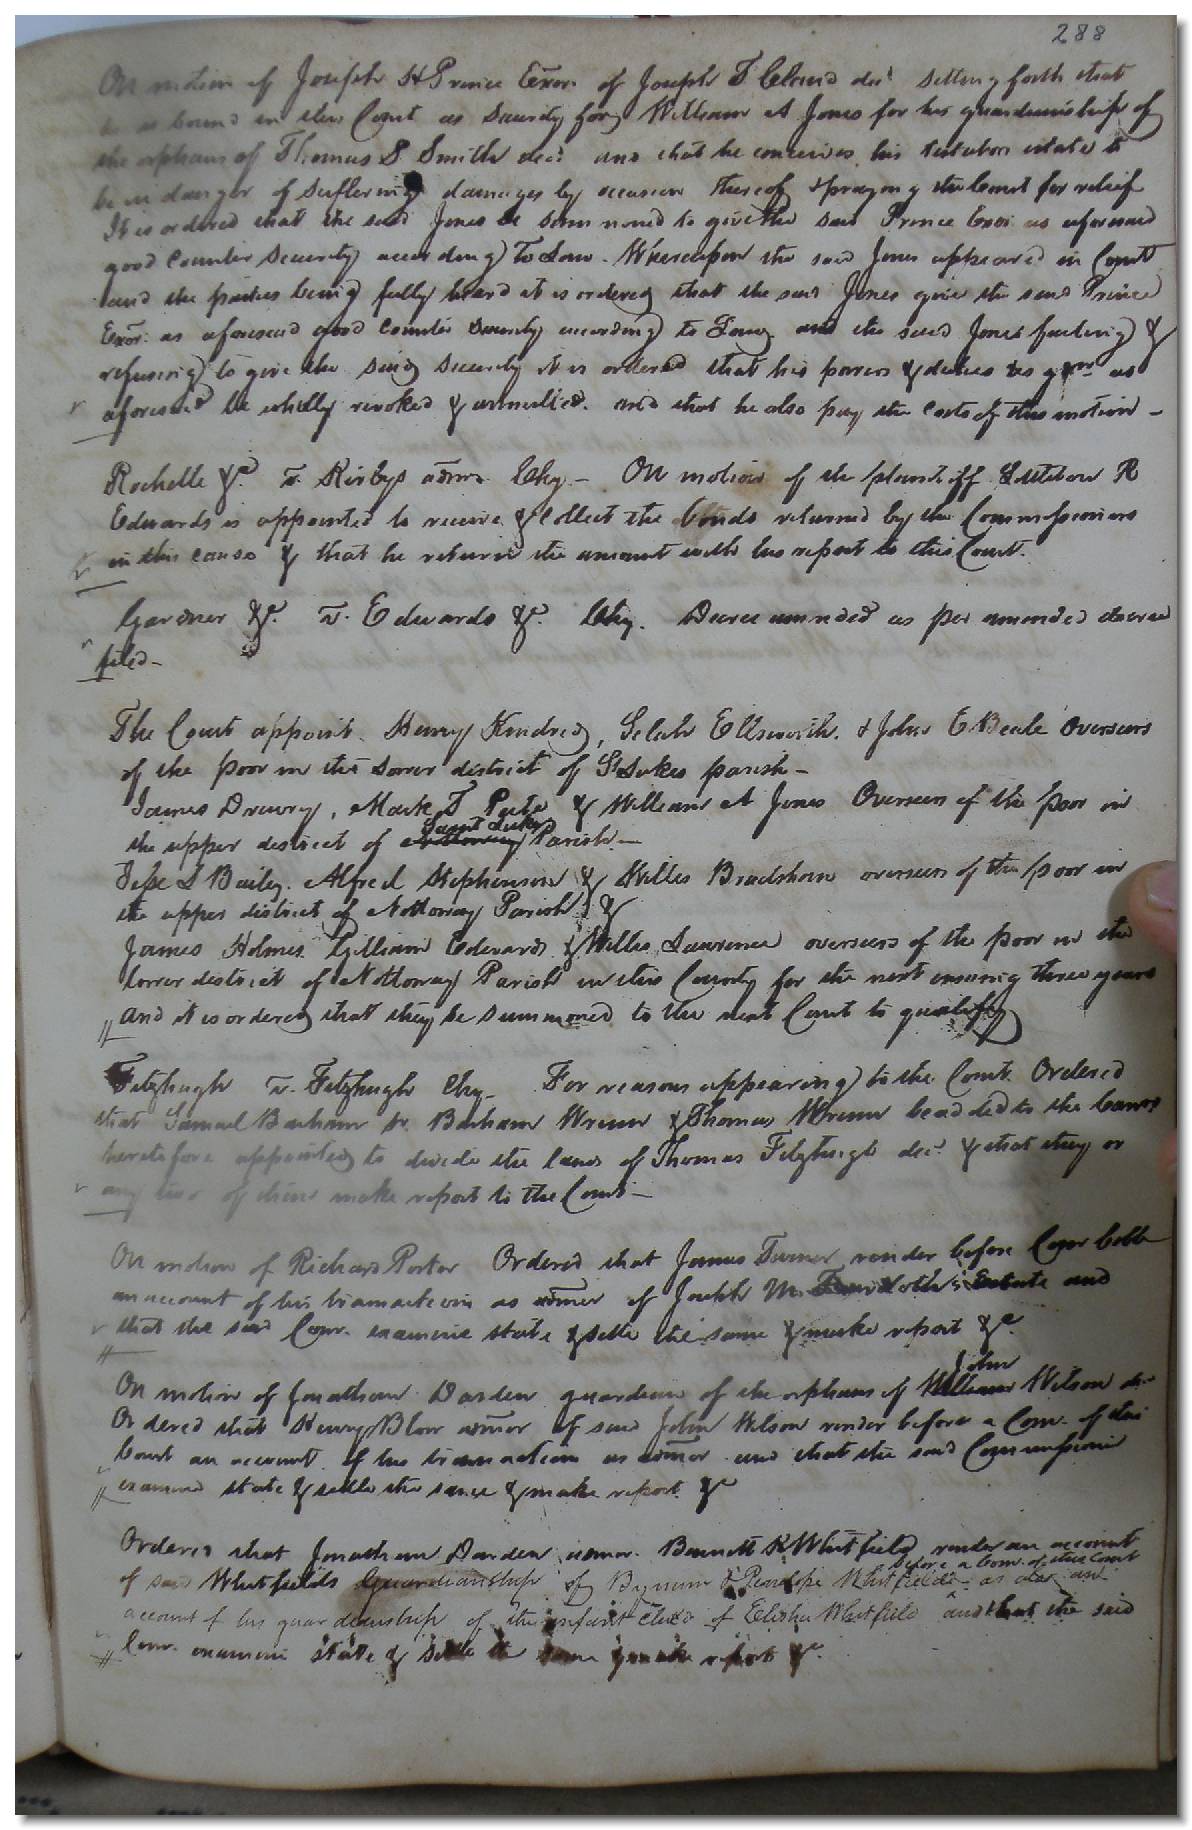 288
On motion of Joseph H Prince Exor. of Joseph T Claud decd setting forth that
he is bound in this Court as Security for William A Jones for his guardianship of
the orphans of Thomas S Smith decd and that he conceives his testators estate to
be in danger of suffering damages by occasion thereof & praying the Court for relief
It is ordered that the said Jones be summoned to give the said Prince Exor. as aforesaid
good Counter Security according to Law. Whereupon the said Jones appeared in Court
and the parties being fully heard it is ordered that the said Jones give the said Prince
Exor. as aforesaid good Counter Security according to Law, and the said Jones failing &
refusing to give the said security it is ordered that his powers & duties as gdn as
aforesaid be wholly revoked & annulled. and that he also pay the costs of this motion -
Rochelle &c. v. Kirbys admr Chy - On motion of the plaintiff Littleton R
Edwards is appointed to receive & Collect the bonds returned by the Commissioners
in this cause & that he return the amount with his report to this Court.
Gardner &c. v. Edwards &c. Chy. Decree amended as per amended decree
filed -
The Court appoint Henry Kindred, Gelah Ellsworth, & John E Beale Overseers
of the poor in the Lower district of St Lukes parish -
James Drewry, Mark T Pate & William A Jones Overseers of the poor in
Saint Lukes
the upper district of Nottoway Parish -
Jesse L Bailey. Alfred Stephenson & Willis Bradshaw overseers of the poor in
the upper district of Nottoway Parish &
James Holmes. William Edwards & Willis Lawrence overseers of the poor in the
lower district of Nottoway Parish in this County for the next ensuing three years
and it is ordered that they be summoned to the next Court to qualify
Fitzhugh v. Fitzhugh Chy - For reasons appearing to the Court. Ordered
that Samuel Barham Sr. Barham Wrenn & Thomas Wrenn be added to the Comrs
heretofore appointed to divide the lands of Thomas Fitzhugh decd & that they or
any two of them make report to the Court -
On motion of Richard Porter Ordered that James Turner render before Comr Cobb
an account of his transactions as admor of Joseph M. Estate and
that the said Comr. examine state & settle the same & make report &c.
John
On motion of Jonathan Darden guardian of the orphans of William Wilson decd
Ordered that Henry Blow admor of said John Wilson render before a Com. of this
Court an account of his transactions as admor and that the said Commissioner
examine state & settle the same & make report &c
Ordered that Jonathan Darden admor. Bennett K Whitfield render an account
before a Com. of this Court
of said Whitfields Guardianship of Bynum & Penelope Whitfield - as also an
account of his guardianship of the infant Child of Elisha Whitfield and that the said
Comr. examine state & settle the same & make report &c.